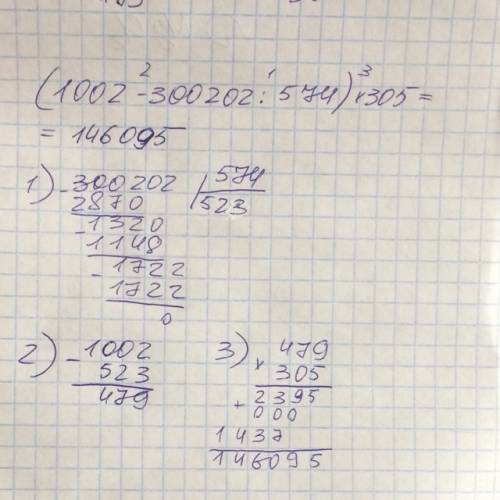 (1002 - 300202 : 574) × 305 =
2 1 3
= 146095
1) - 300202 574
2870 523
- 1320
1148
- 1722
1722
0
2) - 1002
523
479
3) × 479
305
+ 2395
000
1437
146095